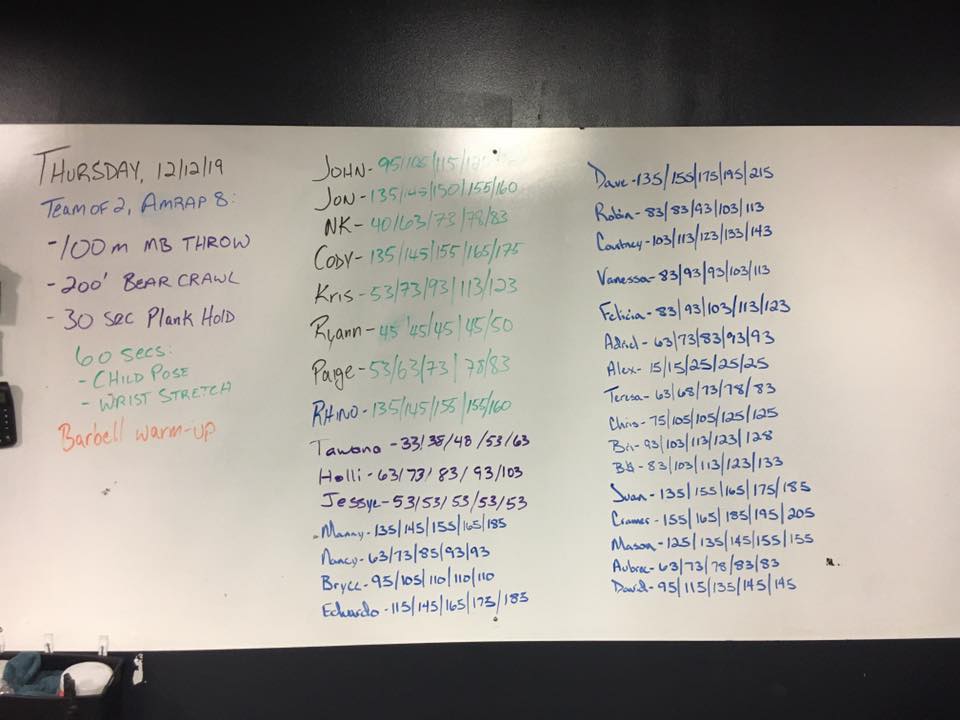 THURSDAY, 12/12/19
Team of 2, AMRAP 8:
- 100 m MB THROW
- 200' BEAR CRAWL
- 30 sec Plank Hold
60 secs:
- CHILD POSE
- WRIST STRETCH
Barbell warm-up
JOHN - 95/105/115/
JON - 135/145/150/155/160
NK - 40/63/73/78/83
CODY - 135/145/155/165/175
Kris - 53/73/93/113/123
Ryann - 45/45/45/45/50
Paige - 53/63/73/78/83
RHINO - 135/145/155/155/160
Tawana - 33/38/48/53/63
Holli - 63/73/83/93/103
Jessye - 53/53/53/53/53
Manny - 135/145/155/165/185
Nancy - 63/73/85/93/93
Bryce - 95/105/110/110/110
Edwardo - 115/145/165/175/185
Dave - 135/155/175/195/215
Robin - 83/83/93/103/113
Courtney - 103/113/123/133/143
Vanessa - 83/93/93/103/113
Felicia - 83/93/103/113/123
Adriel - 63/73/83/93/93
Alex - 15/15/25/25/25
Teresa - 63/68/73/78/83
Chris - 75/105/105/125/125
93/103/113/123/128
83/103/113/123/133
Juan - 135/155/165/175/185
Cramer - 155/165/185/195/205
Mason - 125/135/145/155/155
Aubrae - 63/73/78/83/83
David - 95/115/135/145/145